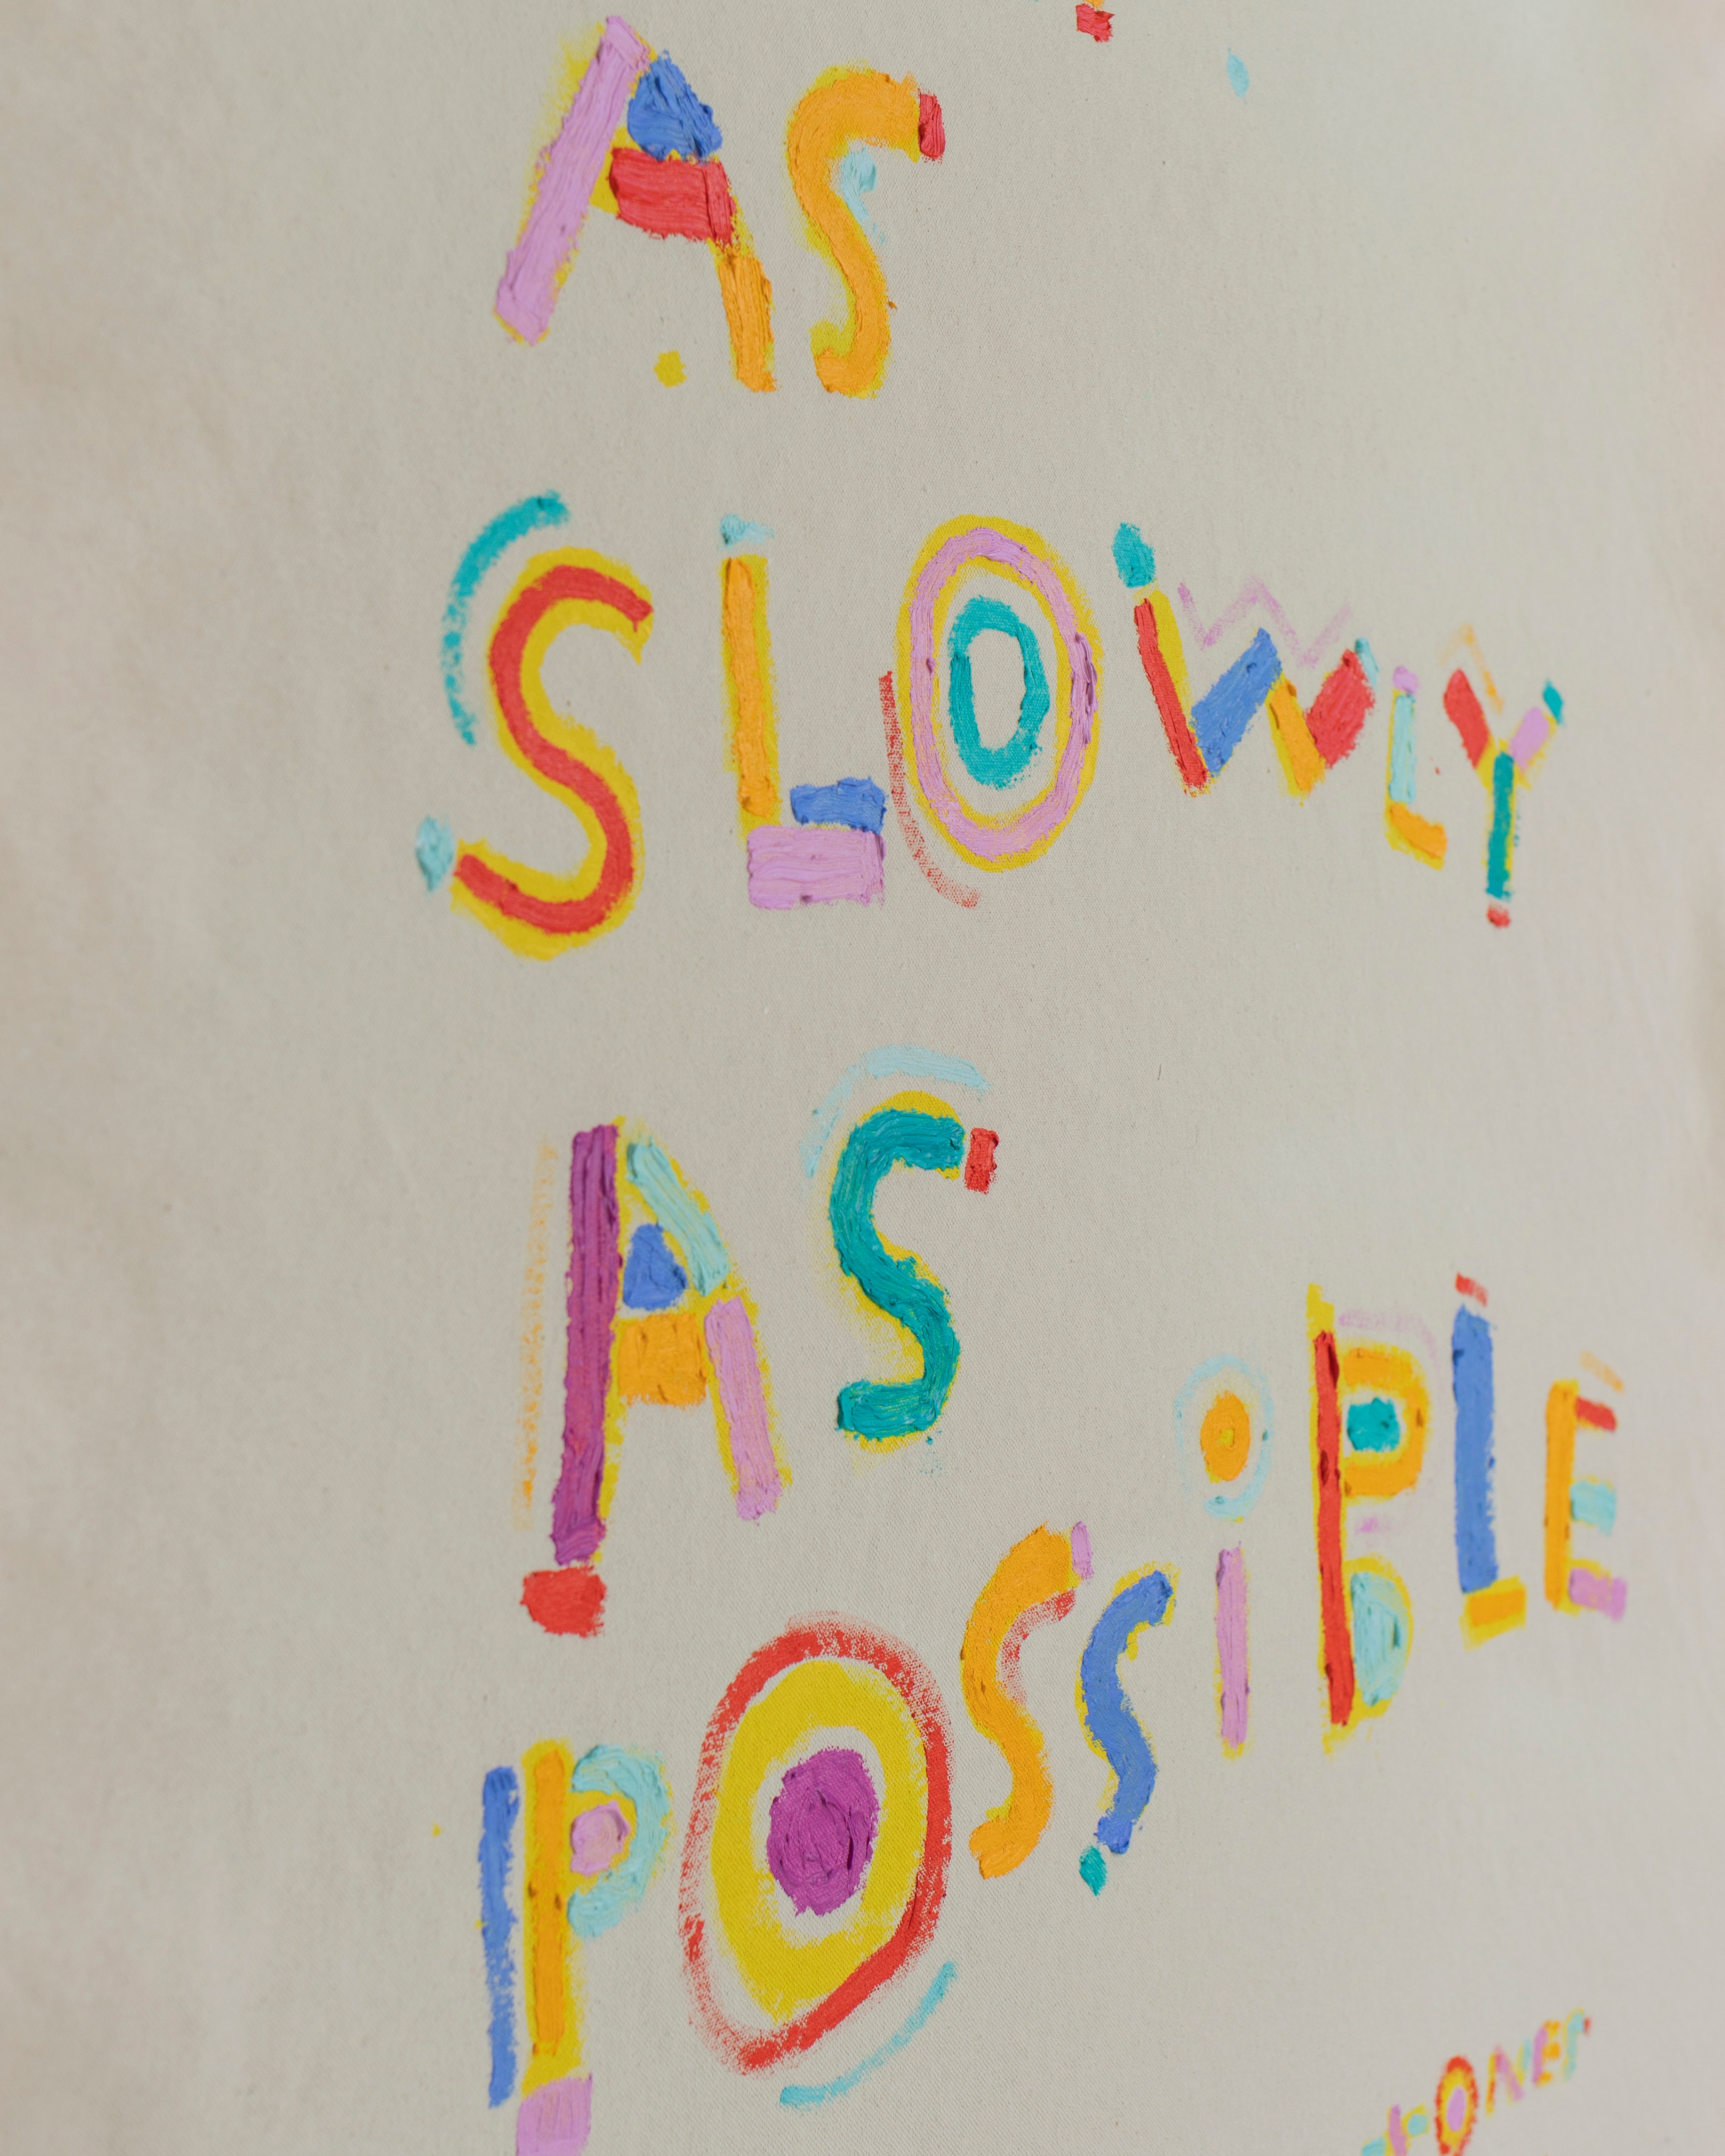 AS
SLOWLY
AS
POSSiBLE